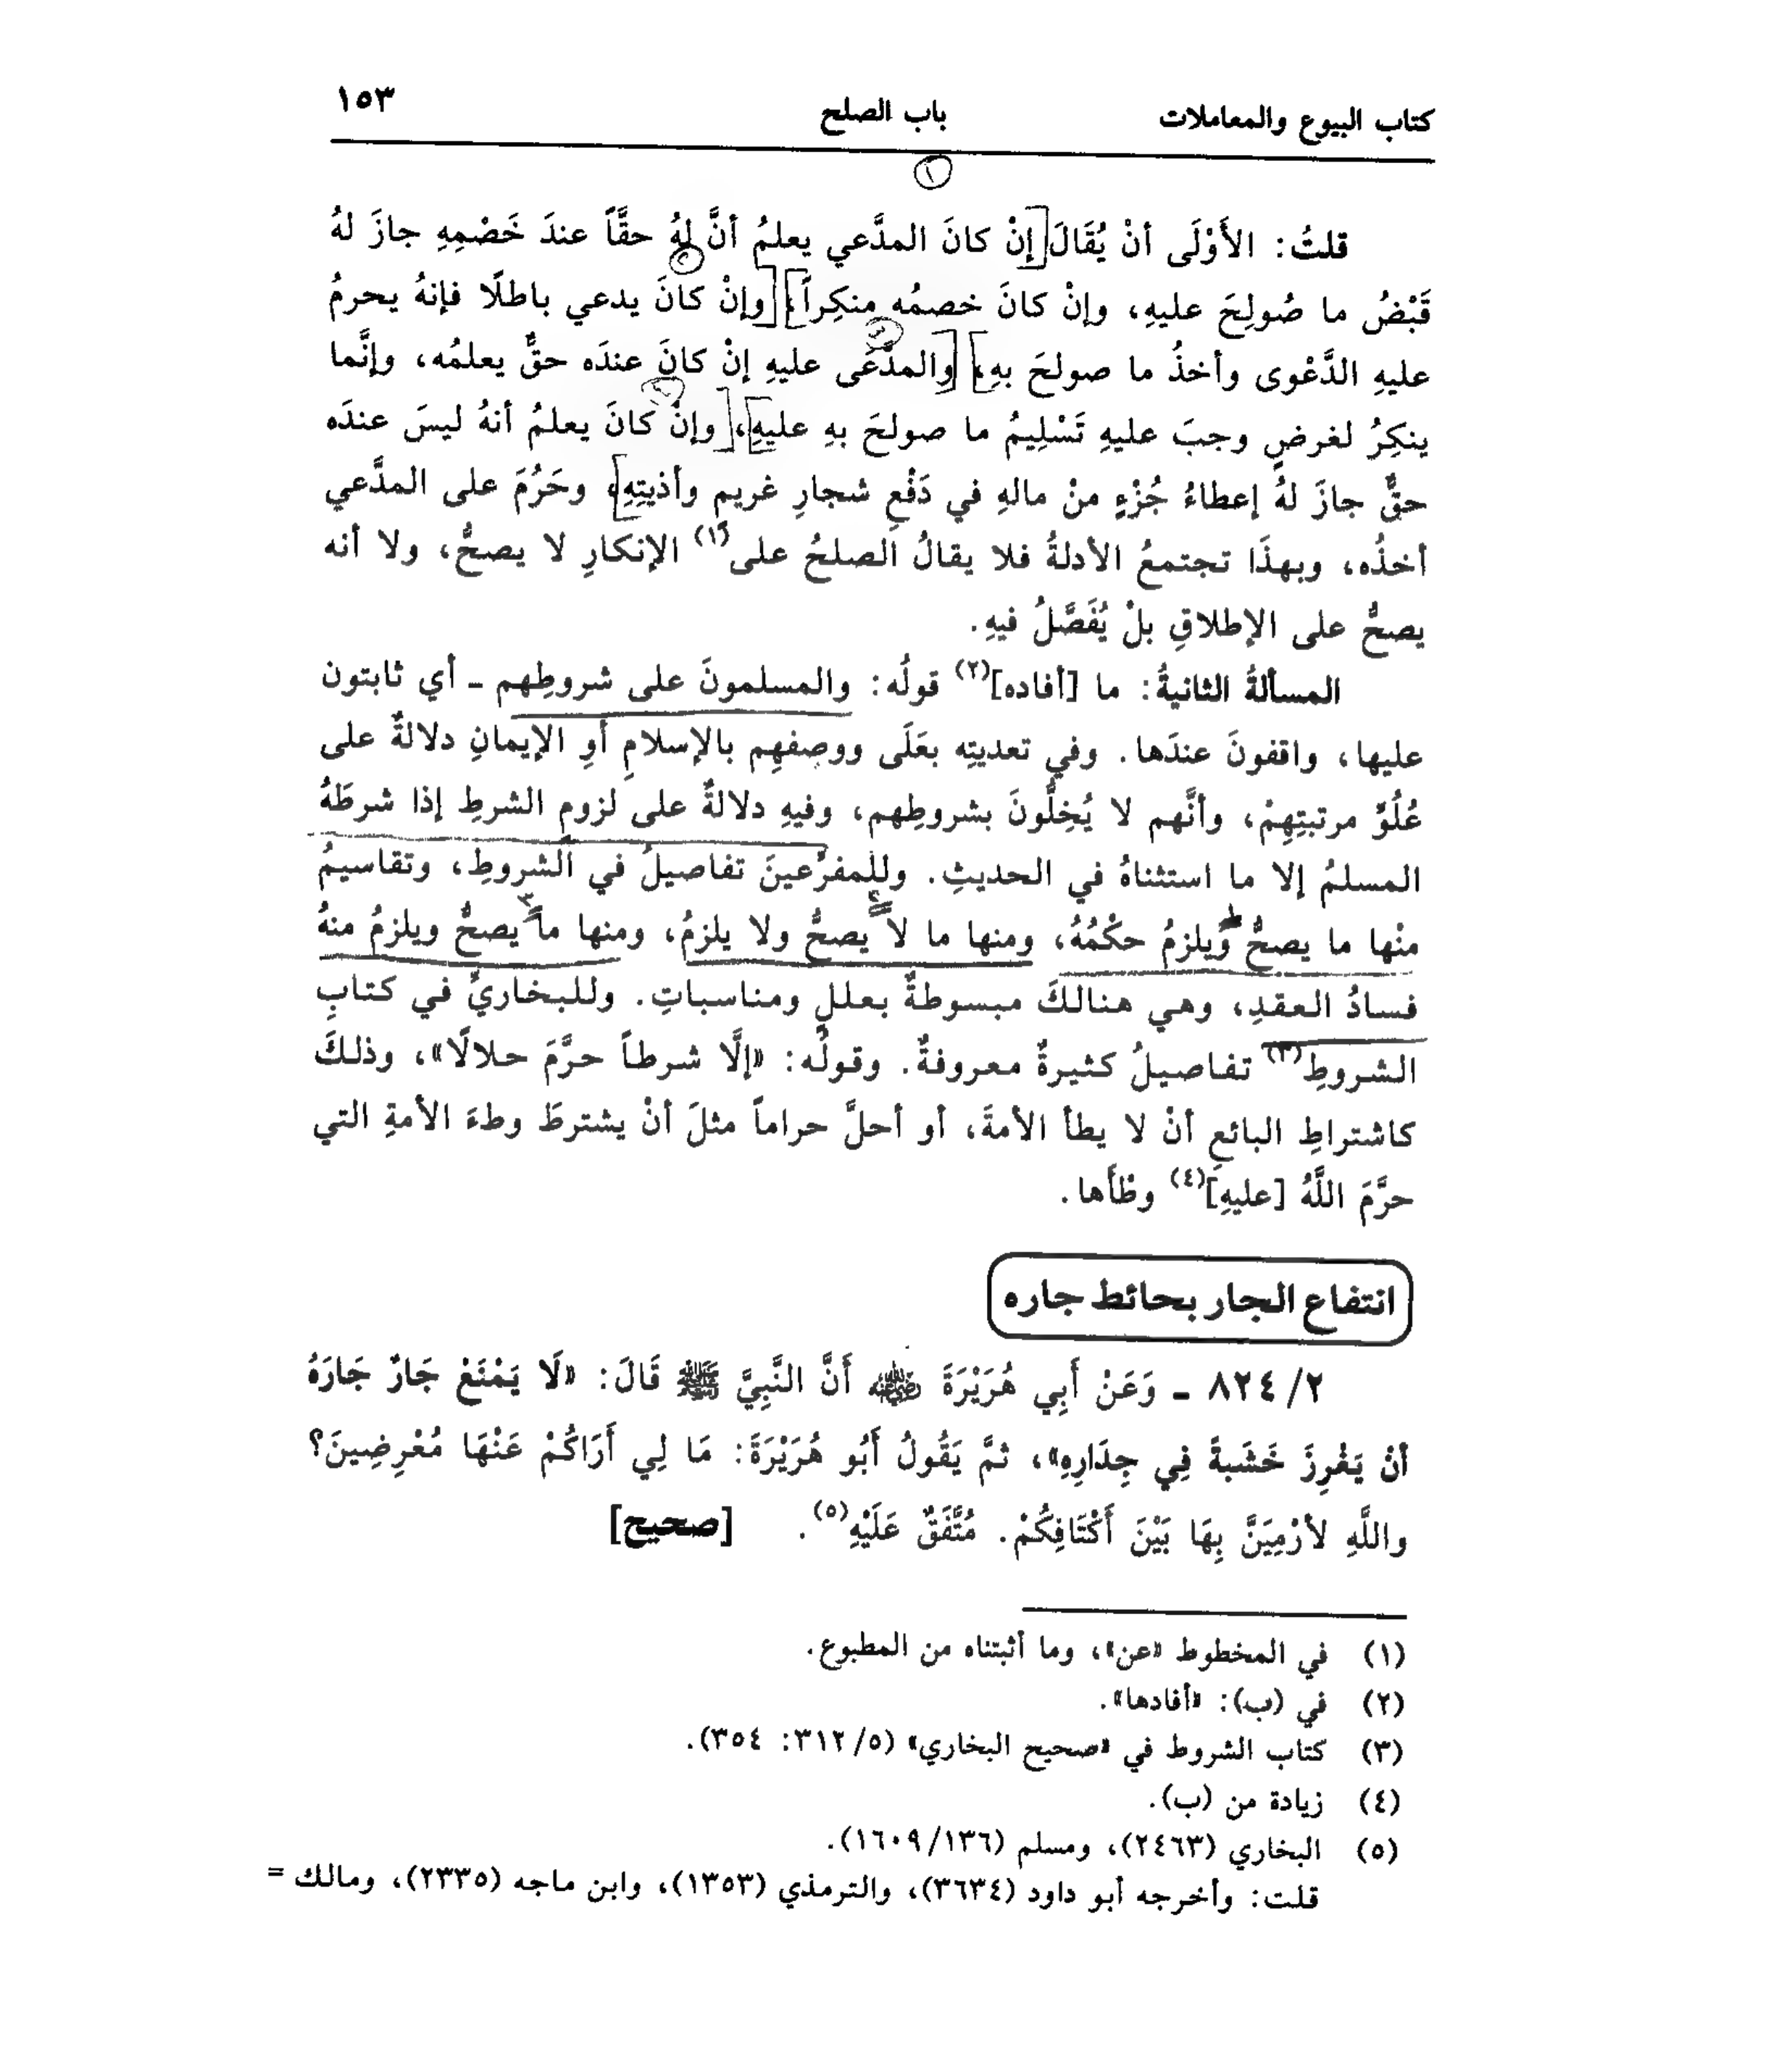 كتاب البيوع والمعاملات باب الصلح ١٥٣
١
قلتُ: الأَوْلَى أنْ يُقَالَ [إنْ كانَ المدَّعي يعلمُ أنَّ لهُ حقَّاً عندَ خَصْمِهِ جازَ لهُ
قَبْضُ ما صُولِحَ عليهِ، وإنْ كانَ خصمُه منكِراً، [وإنْ كانَ يدعي باطلًا فإنهُ يحرمُ
عليهِ الدَّعْوى وأخذُ ما صولحَ بهِ، [والمدَّعَى عليهِ إنْ كانَ عندَه حقٌّ يعلمُه، وإنَّما
ينكِرُ لغرضٍ وجبَ عليهِ تَسْلِيمُ ما صولحَ بهِ عليهِ، [وإنْ كانَ يعلمُ أنهُ ليسَ عندَه
حقٌّ جازَ لهُ إعطاءُ جُزْءٍ منْ مالهِ في دَفْعِ شجارِ غريمٍ وأذيتِهِ، وحَرُمَ على المدَّعي
أخذُه، وبهذَا تجتمعُ الأدلةُ فلا يقالُ الصلحُ على(١) الإنكارِ لا يصحُّ، ولا أنه
يصحُّ على الإطلاقِ بلْ يُفَصَّلُ فيهِ.
المسألةُ الثانيةُ: ما [أفاده](٢) قولُه: والمسلمونَ على شروطِهم ـ أي ثابتون
عليها، واقفونَ عندَها. وفي تعديتِه بعَلَى ووصفهِم بالإسلامِ أوِ الإيمانِ دلالةٌ على
عُلُوِّ مرتبتِهِمْ، وأنَّهم لا يُخِلُّونَ بشروطِهم، وفيهِ دلالةٌ على لزومِ الشرطِ إذا شرطَهُ
المسلمُ إلا ما استثناهُ في الحديثِ. وللمفرِّعينَ تفاصيلُ في الشروطِ، وتقاسيمُ
منْها ما يصحُّ ويلزمُ حكْمُهُ، ومنها ما لا يصحُّ ولا يلزمُ، ومنها ما يصحُّ ويلزمُ منهُ
فسادُ العقدِ، وهي هنالكَ مبسوطةٌ بعللٍ ومناسباتٍ. وللبخاريِّ في كتابِ
الشروطِ(٣) تفاصيلُ كثيرةٌ معروفةٌ. وقولُه: «إلَّا شرطاً حرَّمَ حلالًا»، وذلكَ
كاشتراطِ البائعِ أنْ لا يطأ الأمةَ، أو أحلَّ حراماً مثلَ أنْ يشترطَ وطءَ الأمةِ التي
حرَّمَ اللَّهُ [عليهِ](٤) وطْأَها.
انتفاع الجار بحائط جاره
٨٢٤/٢ ـ وَعَنْ أَبِي هُرَيْرَةَ رضي الله عنه أَنَّ النَّبِيَّ ﷺ قَالَ: «لَا يَمْنَعْ جَارٌ جَارَهُ
أنْ يَغْرِزَ خَشَبةً فِي جِدَارِهِ»، ثمَّ يَقُولُ أَبُو هُرَيْرَةَ: مَا لِي أَرَاكُمْ عَنْهَا مُعْرِضِينَ؟
واللَّهِ لأرْمِيَنَّ بِهَا بَيْنَ أَكْتَافِكُمْ. مُتَّفَقٌ عَلَيْهِ(٥). [صحيح]
(١) في المخطوط «عن»، وما أثبتناه من المطبوع.
(٢) في (ب): «أفادها».
(٣) كتاب الشروط في «صحيح البخاري» (٣١٢/٥: ٣٥٤).
(٤) زيادة من (ب).
(٥) البخاري (٢٤٦٣)، ومسلم (١٦٠٩/١٣٦).
قلت: وأخرجه أبو داود (٣٦٣٤)، والترمذي (١٣٥٣)، وابن ماجه (٢٣٣٥)، ومالك =